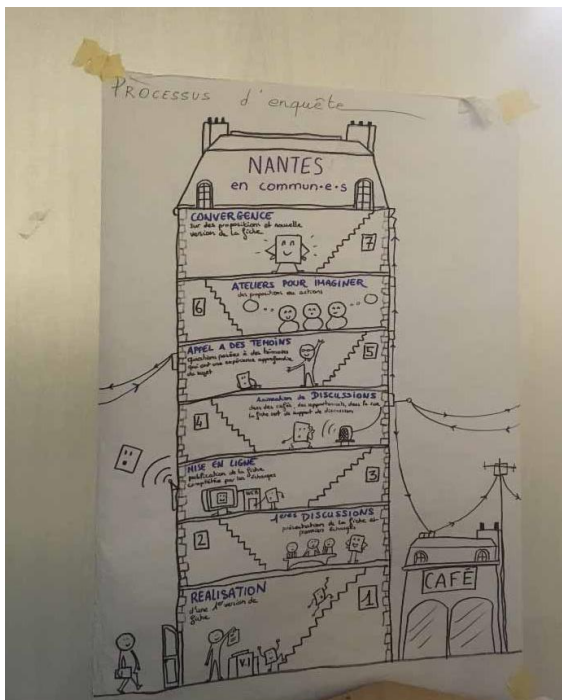 PROCESSUS d'enquête
NANTES
en commun•e•s
CONVERGENCE
sur des propositions et nouvelle
version de la fiche
7
ATELIERS POUR IMAGINER
des propositions ou actions
6
APPEL A DES TEMOINS
question posées à des témoins
qui ont une expérience approfondie
du sujet
5
Animation de DISCUSSIONS
dans des cafés, des appartements, dans la rue
la fiche est un support de discussion
4
MISE EN LIGNE
publication de la fiche
complétée par les échanges
3
1ères DISCUSSIONS
présentation de la fiche et
premiers échanges
2
REALISATION
d'une 1ère version de
fiche
1
V.1
CAFÉ